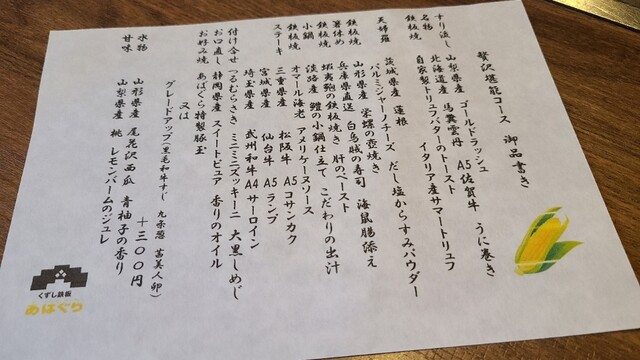 贅沢堪能コース 御品書き
すり流し 山梨県産 ゴールドラッシュ
名物 北海道産 馬糞雲丹 A5佐賀牛 うに巻き
鉄板焼 自家製トリュフバターのトースト イタリア産サマートリュフ
天婦羅 茨城県産 蓮根
パルミジャーノチーズ だし塩からすみパウダー
鉄板焼 山形県産 栄螺の壺焼き
箸休め 兵庫県直送 白烏賊の寿司 海鼠腸添え
鉄板焼 蝦夷鮑の鉄板焼き 肝のペースト
小鍋 淡路産 鱧の小鍋仕立て こだわりの出汁
鉄板焼 オマール海老 アメリケーヌソース
ステーキ 三重県産 松阪牛 A5コサンカク
宮城県産 仙台牛 A5ランプ
埼玉県産 武州和牛 A4サーロイン
付け合せ つるむらさき ミニミニズッキーニ 大黒しめじ
お口直し 静岡県産 スイートピュア 香りのオイル
お好み焼 あばぐら特製豚玉
又は
グレードアップ(黒毛和牛すじ 九条葱 苗美人卵)
十三〇〇円
水物 山形県産 尾花沢西瓜 青柚子の香り
甘味 山梨県産 桃 レモンバームのジュレ
くずし鉄板
あばぐら